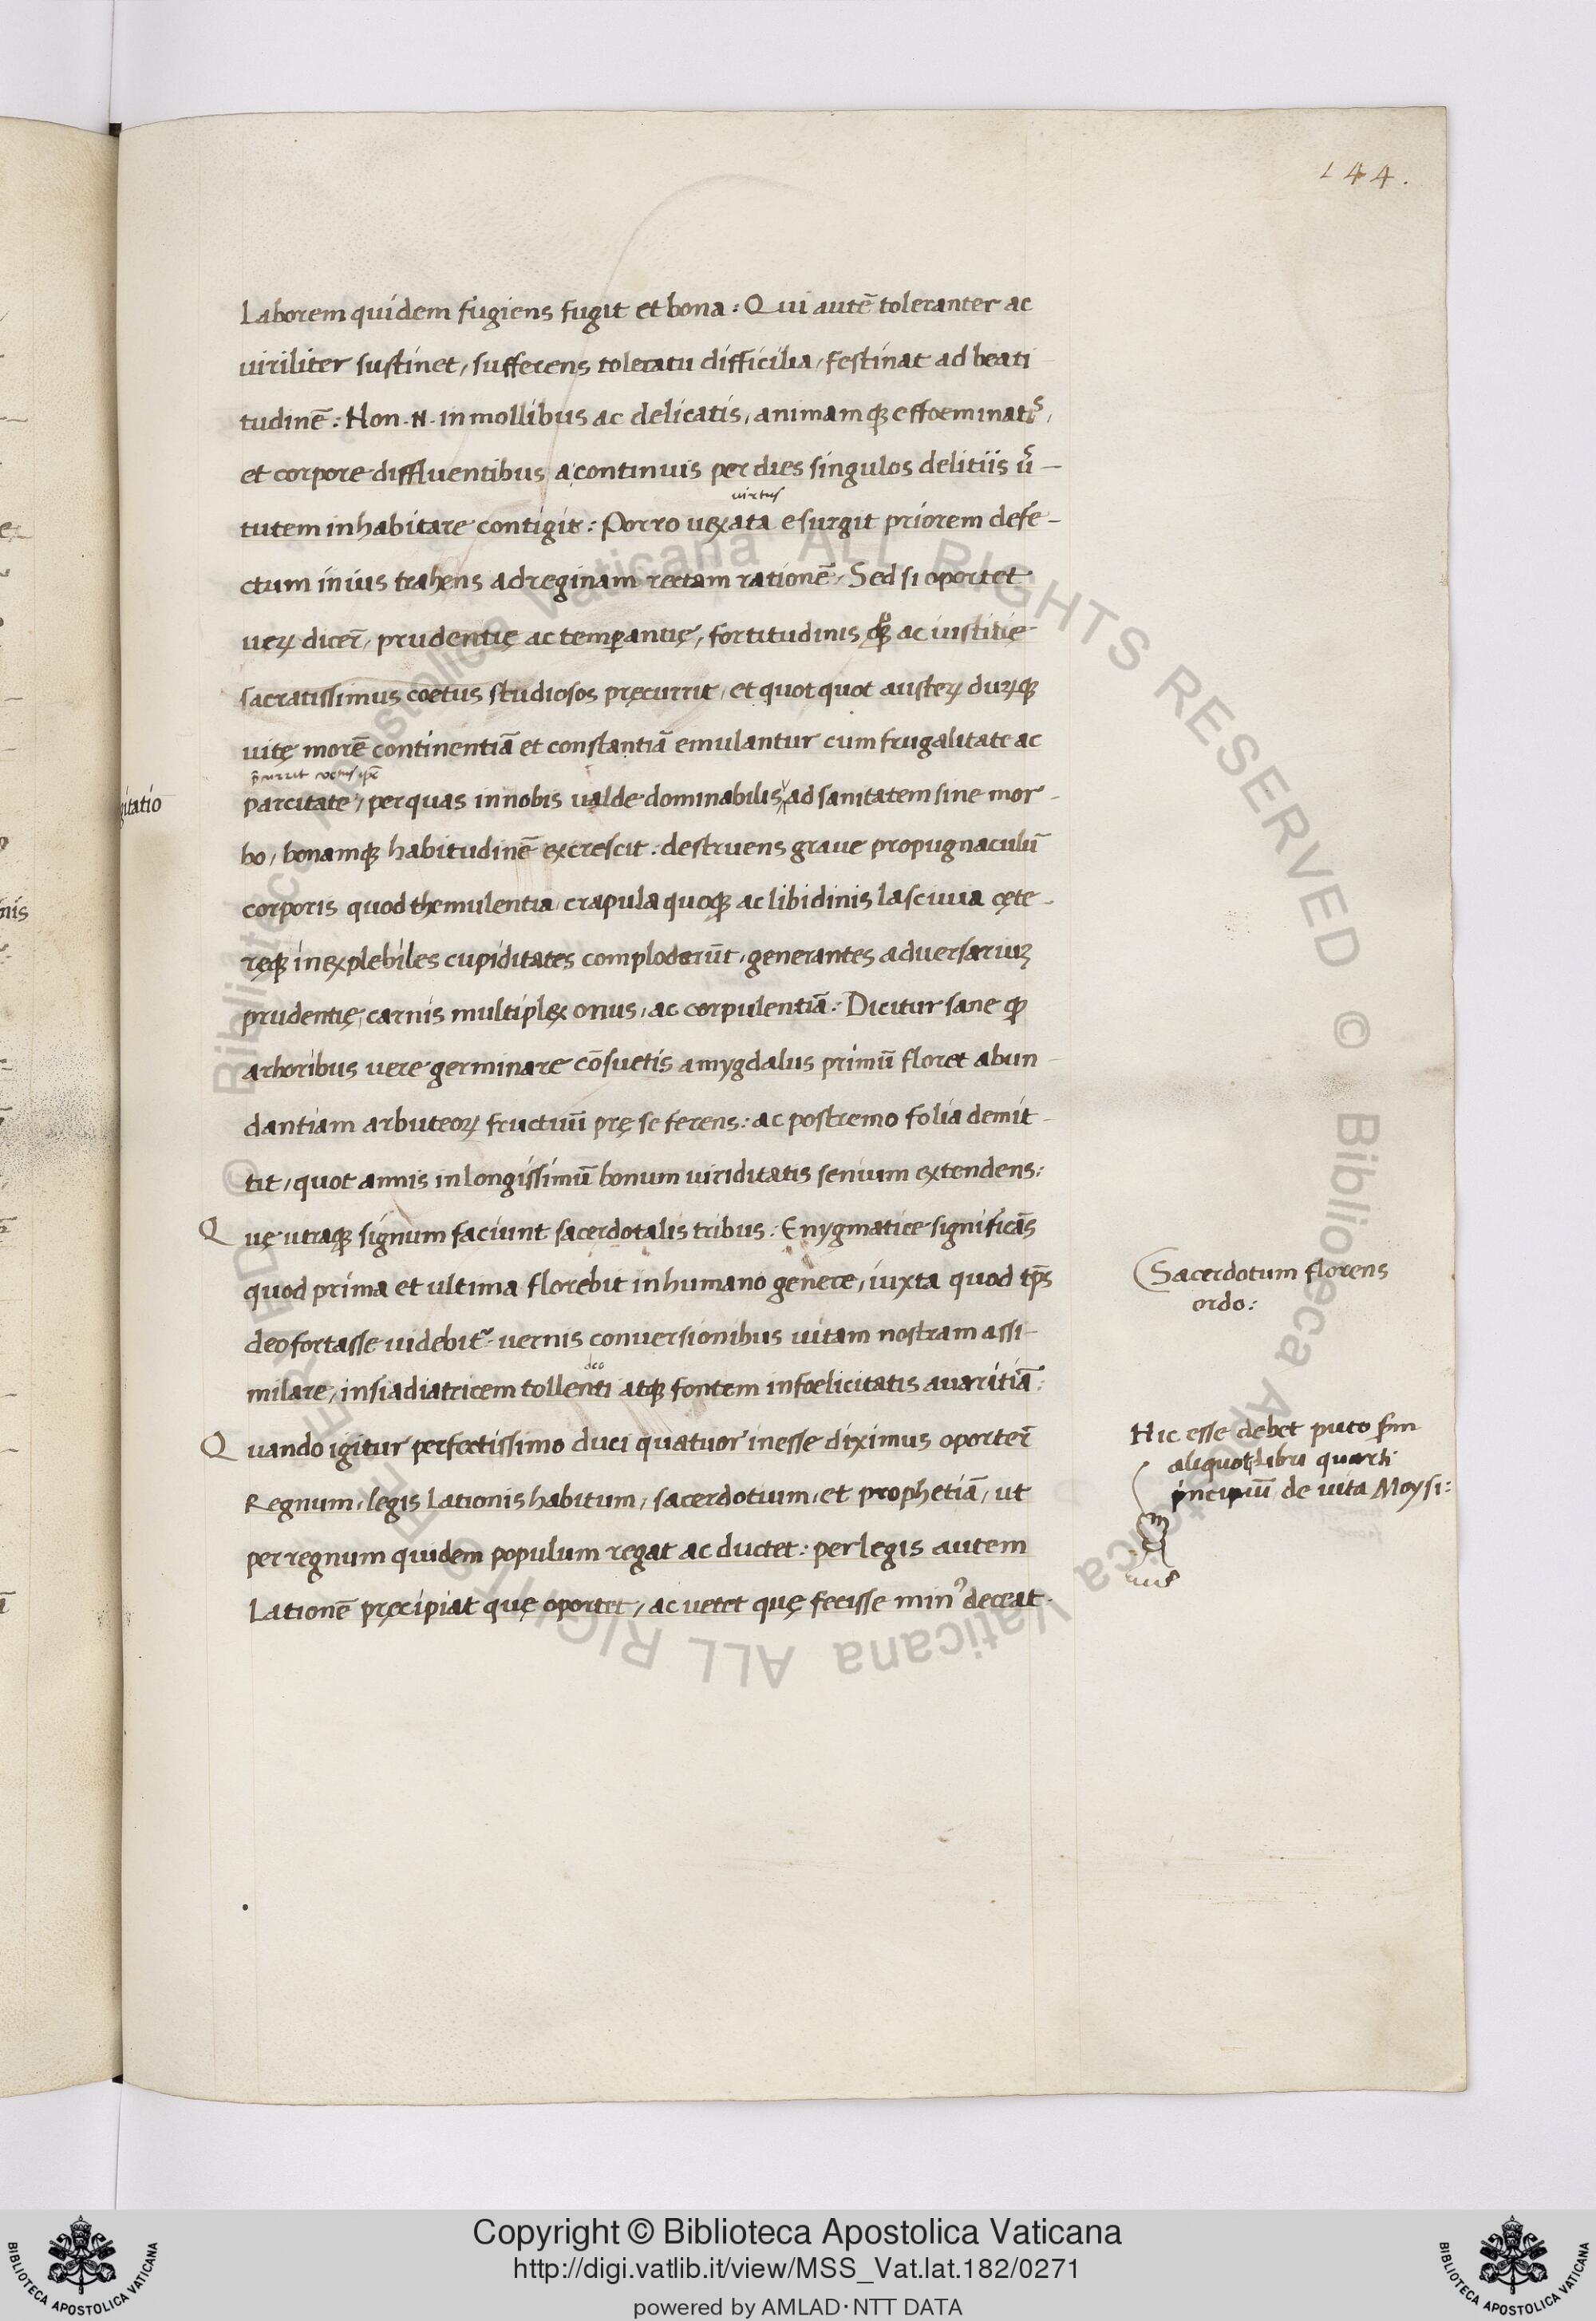 144.
Laborem quidem fugiens fugit et bona: Qui autē toleranter ac
viriliter sustinet, sufferens toleratu difficilia, festinat ad beati
tudinē: Non .N. in mollibus ac delicatis, animamqꝫ effoeminatꝭ,
et corpore diffluentibus a continuis per dies singulos delitiis
virtus
tutem inhabitare contigit: Porro uexata esurgit priorem defe-
ctum in ius trahens ad reginam rectam rationē, Sed si oportet
ueꝝ dicer̄, prudentię ac temperantię, fortitudinis qꝫ ac iustitię
sacratissimus coetus studiosos pręcurrit, et quot quot austeꝝ duꝝqꝫ
uitę morē continentiā et constantiā emulantur cum frugalitate ac
parcitate, per quas in nobis ualde dominabilis ad sanitatem sine mor-
bo, bonamqꝫ habitudinē excrescit: destruens graue propugnaculū
corporis quod themulentia crapula quoqꝫ ac libidinis lasciuia cęte-
ręqꝫ inexplebiles cupiditates comploderūt, generantes aduersariuꝫ
prudentię, carnis multiplex onus, ac corpulentiā: Dicitur sane ꝙ
arboribus vere germinare cōsuetis amygdalus primū floret abun-
dantiam arbuteoꝝ fructuū prę se ferens: ac postremo folia demit-
tit, quot annis in longissimū bonum uiriditatis senium extendens:
Quę utraqꝫ signum faciunt sacerdotalis tribus: Enygmatice significās
quod prima et ultima florebit in humano genere, iuxta quod tp̄s
Sacerdotum florens
ordo:
deo fortasse uidebit᷑ vernis conuersionibus uitam nostram assi-
deo
milare, insiadiatricem tollenti atqꝫ fontem infoelicitatis auaritiā:
Quando igitur perfectissimo duci quatuor inesse diximus oporter̄
Hic esse debet puto
aliquot libri quarti
de uita Moysi:
Regnum, legis lationis habitum, sacerdotium, et prophetiā, ut
per regnum quidem populum regat ac ductet: per legis autem
Lationē pręcipiat quę oportet, ac vetet quę fecisse minꝰ deceat.
itatio
nis
© Biblioteca Apostolica Vaticana ALL RIGHTS RESERVED © Biblioteca Apostolica Vaticana ALL RIGHTS RESERVED
Copyright © Biblioteca Apostolica Vaticana
http://digi.vatlib.it/view/MSS_Vat.lat.182/0271
powered by AMLAD·NTT DATA
BIBLIOTECA APOSTOLICA VATICANA
BIBLIOTECA APOSTOLICA VATICANA